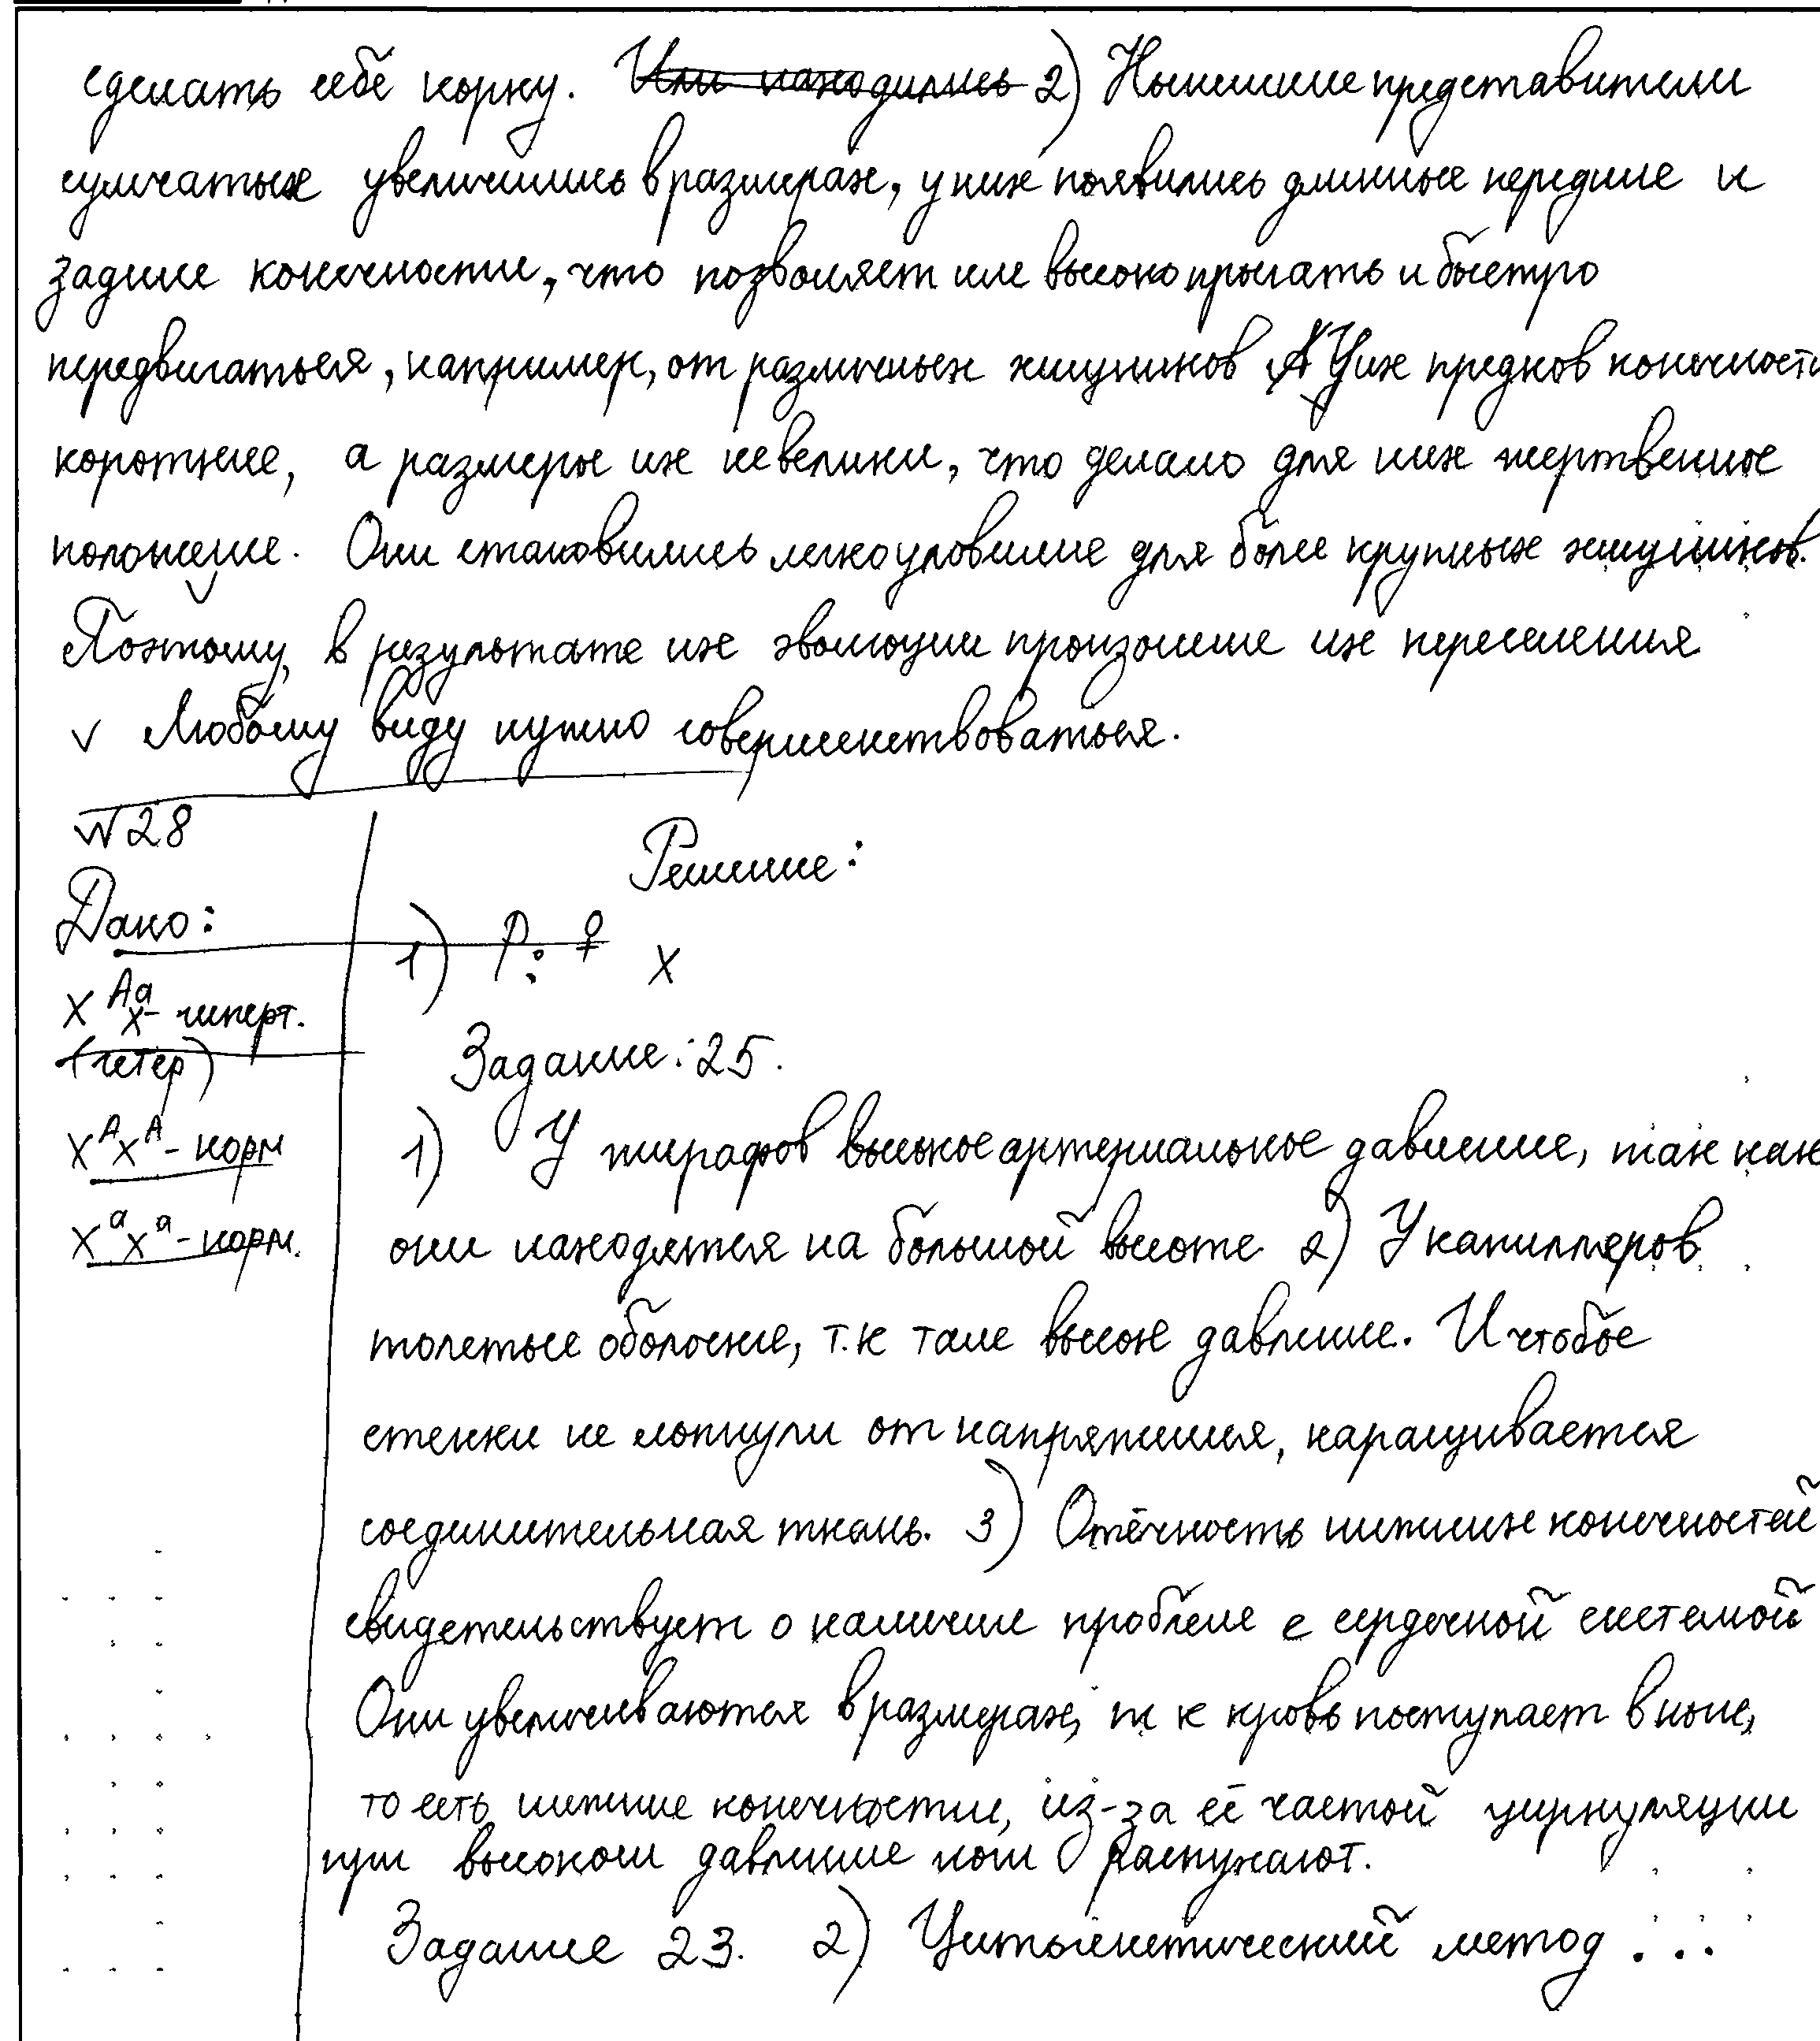 сделать себе норку. Или находились 2) Нынешние представители
сумчатых увеличились в размерах, у них появились длинные передние и
задние конечности, что позволяет им высоко прыгать и быстро
передвигаться, например, от различных хищников У их предков конечности
короткие, а размеры их невелики, что делало для них жертвенное
положение. Они становились легкоуловимые для более крупных хищников.
Поэтому, в результате их эволюции произошли их переселения
√ Любому виду нужно совершенствоваться.
№28
Решение:
Дано:
1) P: ♀ X
X^A X^a - гиперт.
(гетер)
Задание: 25.
X^A X^A - норм
1) У жирафов высокое артериальное давление, так как
X^a X^a - норм.
они находятся на большой высоте 2) У капилляров
толстые оболочки, т.к там высок давление. И чтобы
стенки не лопнули от напряжения, наращивается
соединительная ткань. 3) Отёчность нижних конечностей
свидетельствует о наличие проблем с сердечной системой
Они увеличиваются в размерах, т к кровь поступает в ноги,
то есть нижние конечности, из-за её частой циркуляции
при высоком давление ноги распухают.
Задание 23. 2) Цитогенетический метод ...